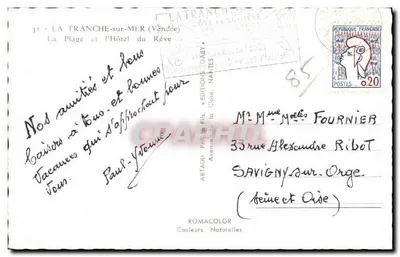 31 - LA TRANCHE-sur-MER (Vendée)
La Plage et l'Hôtel du Rêve
LA TRANCHE
REPUBLIQUE FRANÇAISE
POSTES 0,20
85
Nos amitiés et bons
baisers à tous et bonnes
vacances qui s'approchent pour
vous.
Paul-Yvonne
ARTAUD Père et Fils "EDITIONS GABY"
Avenue de la Close, NANTES
Mr Mme Melles FOURNIER
33 rue Alexandre RIBOT
SAVIGNY-sur-Orge
(Seine et Oise)
ROMACOLOR
Couleurs Naturelles
CPArama.com